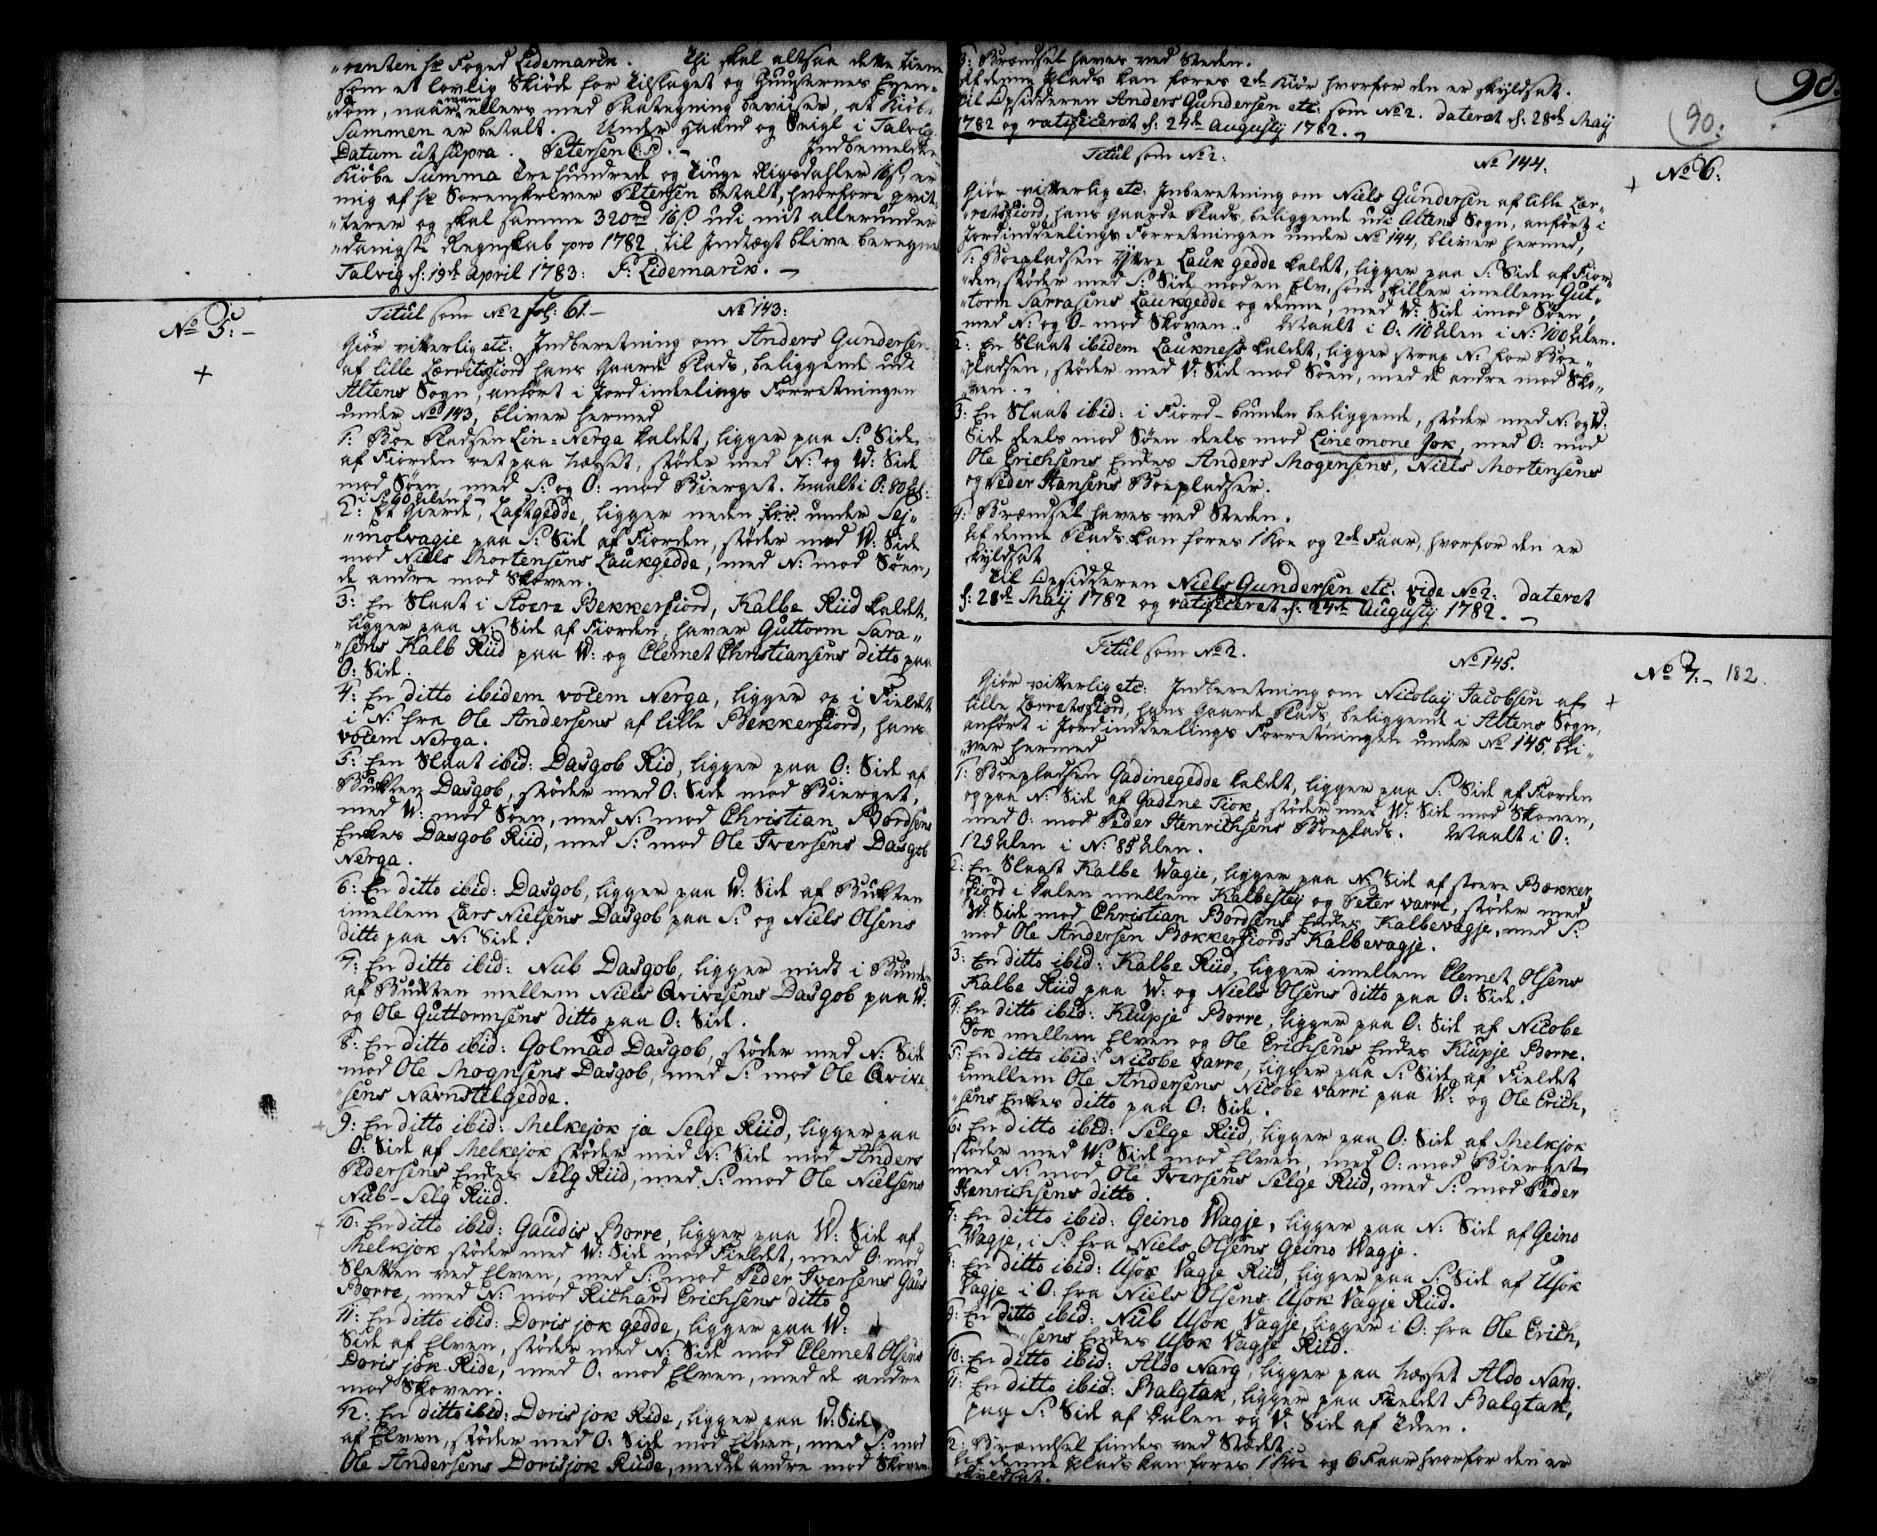 "renten Hr Foged Lidemarck. Thi skal altsaa dette tiene
som et lovlig Skiøde for Tilslaget og Huusternes Eyen-
"dom, naar man ellers med Paategning beviiser, at Kiøb-
Summen er betalt. Under Haand og Seigl i Talvig
Datum ut supra. Petersen (L:S.). - Indbemeldte
Kiøbe Summa Tre hundrede og Tiuge Rigsdahler 16 s, er
mig af Hr Sorenskriver Petersen betalt, hvorfore qvit-
"terer og skal samme 320rd 16 s udi mit allerunder
"danigste Regnskab pro 1782, til Indtægt blive beregnet
Talvig d: 19de April 1783: P: Lidemarck. -
No 5: -
Titul som No 2 fol: 61. - No 143:
Giør vitterlig etc: Indberetning om Anders Gundersen
af lille Lerritsfiord hans Gaarde Plads, beliggende udi
Altens Sogn, anført i Jord inddelings Forretningen
under No 143, bliver hermed
1: Boe Pladsen Lin-Nerga kaldet, ligger paa S: Side
af Fiorden ret paa Næsset, støder med N: og W: Side
mod Søen, med S: og O: mod Bierget. Maalt i O: 80 Al:
i S: 90 Alen. -
2: Et Gierde, Lafkgedde, ligger neden for under Sej-
"molvagie paa S: Side af Fiorden, støder med W: Side
mod Niels Mortensens Laukgedde, med N: mod Søen,
de andre mod Skoven.
3: En Slaat i Stoere Bekkerfiord, Kalbe Riid kaldet,
ligger paa N: Side af Fiorden, haver Guttorm Sara-
"sens Kalb Riid paa W: og Clemet Christiansens ditto paa
O: Side.
4: En ditto ibidem vocem Nerga, ligger op i Fieldet
i N: fra Ole Andersens af lille Bekkerfiord, hans
vocem Nerga.
5: Een Slaat ibid: Dasgob Rid, ligger paa O: Side af
Bugten Dasgob, støder med O: Side mod Bierget,
med W: mod Søen, med N: mod Christian Bordsens
Enkes Dasgob Riid, med S: mod Ole Iversens Dasgob
Nerga.
6: En ditto ibid: Dasgob, ligger paa W: Side af Bugten
imellem Lars Nielsens Dasgob paa S: og Niels Olsens
ditto paa N: Side.
7: En ditto ibid: Nub Dasgob, ligger midt i Bunden
af Bugten mellem Niels Qvivesens Dasgob paa W:
og Ole Guttormsens ditto paa O: Side.
8: En ditto ibid: Golmad Dasgob, støder med N: Side
mod Ole Mognsens Dasgob, med S: mod Ole Qvive-
"sens Navnstelgedde.
9: En ditto ibid: Melkejok ja Selge Riid, ligger paa
O: Side af Melkejok støder med N: Side mod Anders
Pedersens Enkes Selg Riid, med S: mod Ole Nielsens
Nub-Selg Riid.
10: En ditto ibid: Gaudis Borre, ligger paa W: Side af
Melkjok støder med W: Side mod Fieldet, med O: mod
Sletten ved Elven, med S: mod Peder Iversens Gaus
Borre, med N: mod Richard Erichsens ditto
11: En ditto ibid: Doris jok gedde, ligger paa W:
Side af Elven, støder med N: Side mod Clemet Olsens
Doris jok Ride, med O: mod Elven, med de andre
mod Skoven.
12: En ditto ibid: Doris jok Ride, ligger paa W: Side
af Elven, støder med O: Side mod Elven, med S: mod
Ole Andersens Dorisjok Riide, med de andre mod Skoven.
90.
90:
3: Brændsel haves ved Steden.
Af denne Plads kan fores 2de Kiør hvorfor den er skyldsat.
Til Opsidderen Anders Gundersen etc: som No 2. dateret d: 28de May
1782 og ratificeret d: 24de Augusty 1782. -
Titul som No 2: No 144.
No 6:
Giør vitterlig etc: Inberetning om Niels Gundersen af lille Ler-
"retsfiord, hans Gaarde Plads, beliggende udi Altens Sogn, anført i
Jordinddeelings Forretningen under No 144, bliver hermed,
1: Boepladsen Yttre Lauk gedde kaldet, ligger paa S: Side af Fior-
"den, støder med S: Side mod en Elv, som skiller imellem Gut-
"torm Sarrasens Laukgedde og denne, med W: Side imod Søen,
med N: og O- mod Skoven. Maalt i O: 110 Alen i N: 100 Alen.
2: En Slaat ibidem Laukness kaldet, ligger strax N: for Boe-
"pladsen, støder med W: Side mod Søen, med de andre mod Sko-
"ven. -
3: En Slaat ibid: i Fiord-bunden beliggende, støder med N: og W:
Side deels mod Søen deels mod Linemone Jok, med O: mod
Ole Erichsens Enkes Anders Mogensens, Niels Mortensens
og Peder Hansens Boepladser.
4: Brændsel haves ved Steden.
Af denne Plads kan fores 1 Koe og 2de Faar, hvorfor den er
skyldsat
Til Opsidderen Niels Gundersen etc: vide No 2: dateret
d: 28de May 1782 og ratificeret d: 24de Augusty 1782. -
Titul som No 2. No 145.
No 7. - 182
Giør vitterlig etc: Indberetning om Nicolay Jacobsen af
lille Lerretsfiord, hans Gaarde Plads, beliggende i Altens Sogn,
anført i Jordinddeelings Forretningen under No 145, bli-
"ver hermed
1: Boepladsen Gadinegedde kaldet, ligger paa S: Side af Fiorden
og paa N: Side af Gadene Jok, støder med W: Side mod Skoven,
med O: mod Peder Henrichsens Boeplads. Maalt i O:
125 Alen i N: 85 Alen.
2: En Slaat Kalbe Wagie, ligger paa N: Side af stoere Bekker
"fiord i Dalen mellem Kalbestey og Peter varre, støder med
W: Side mod Christian Bordsens Enkes Kalbevagje, med S:
mod Ole Andersen Bekkerfiords Kalbevagje.
3: En ditto ibid: Kalbe Riid, ligger imellem Clemet Olsens
Kalbe Riid paa W: og Niels Olsens ditto paa O: Side.
4: En ditto ibid: Kiupje Borre, ligger paa O: Side af Nicobe
Jok mellem Elven og Ole Erichsens Enkes Kiupje Borre.
5: En ditto ibid: Nicobe varre, ligger paa S: Side af Fieldet
imellem Ole Andersens Nicobe varri paa W: og Ole Erich-
"sens Enkes ditto paa O: Side.
6: En ditto ibid: Selge Riid, ligger paa O: Side af Melkjok
støder med W: Side mod Elven, med O: mod Bierget
med N: mod Ole Iversens Selge Riid, med S: mod Peder
Henrichsens ditto.
7: En ditto ibid: Geino Wagje, ligger paa N: Side af Geino
Wagje, i S: fra Niels Olsens Geino Wagje.
8: En ditto ibid: Usok Vagje Riid, ligger paa S: Side af Usok
Vagje i O: fra Niels Olsens Usok Vagje Riid.
9: En ditto ibid: Nub Usok Vagje, ligger i O: fra Ole Erich-
"sens Enkes Usok Vagje Riid.
10: En ditto ibid: Aldo Narg, ligger paa Næsset Aldo Narg.
11: En ditto ibid: Balgtak, ligger paa Fieldet Balgtak,
paa S: Side af Dalen og W: Side af Iden.
12: Brændsel findes ved Stædet
Af denne Plads kan fores 1 Koe og 6 Faar hvorfor den er
skyldsat.